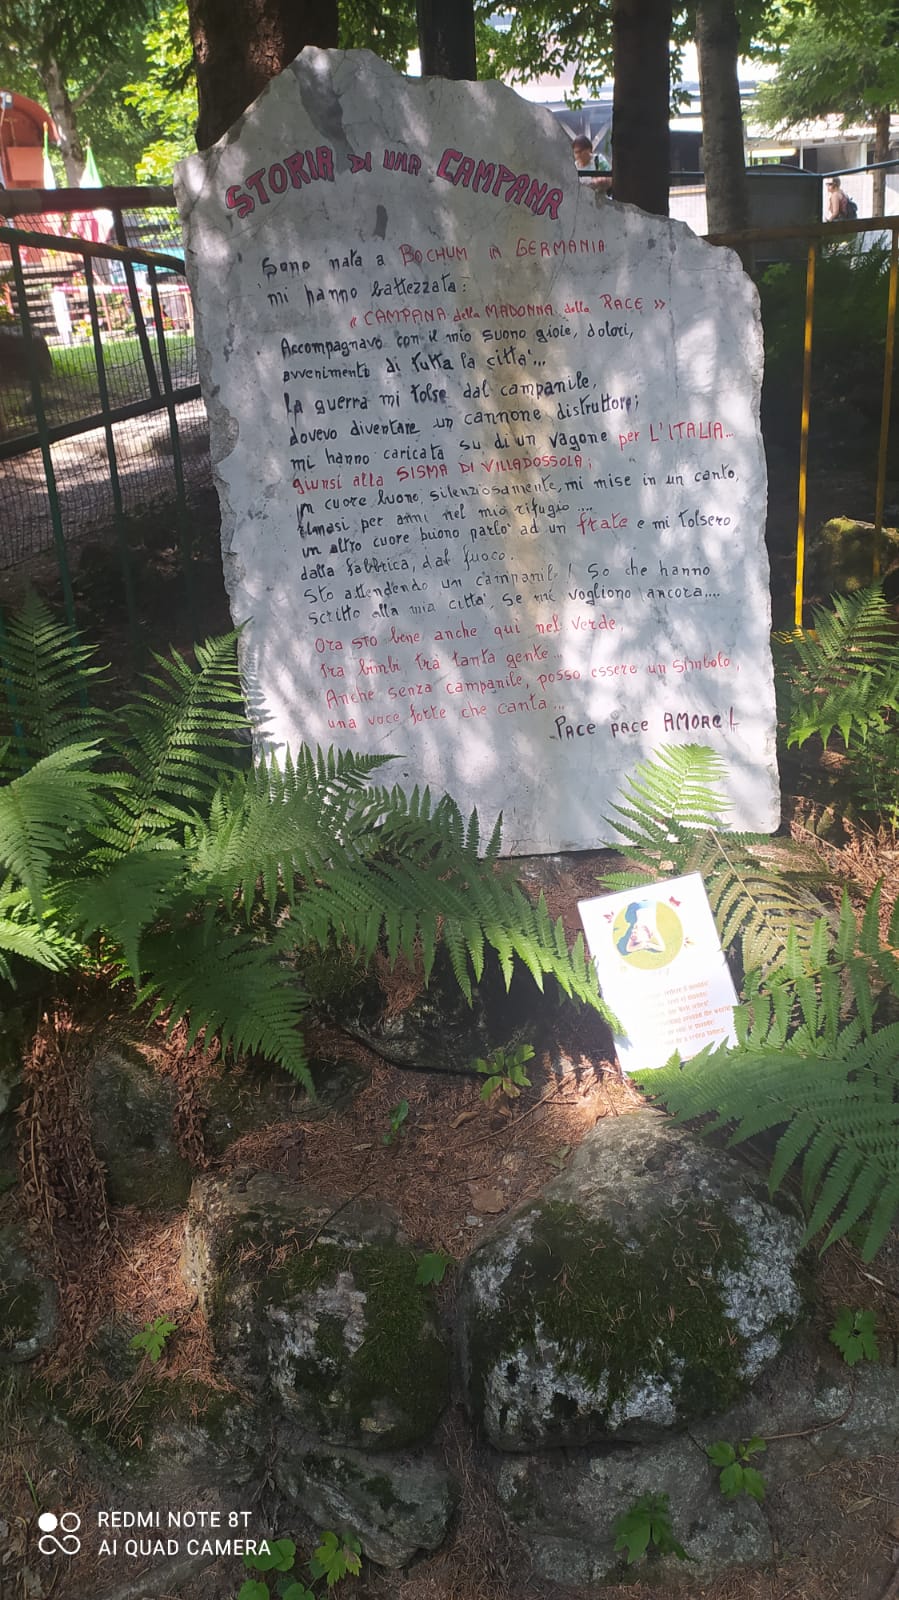 STORIA DI UNA CAMPANA
Sono nata a BOCHUM in GERMANIA
mi hanno battezzata:
« CAMPANA della MADONNA della PACE »
Accompagnavo con il mio suono gioie, dolori,
avvenimenti di tutta la città...
la guerra mi tolse dal campanile,
dovevo diventare un cannone distruttore;
mi hanno caricata su di un vagone per L'ITALIA...
giunsi alla SISMA DI VILLADOSSOLA;
un cuore buono, silenziosamente, mi mise in un canto,
rimasi per anni nel mio rifugio ....
un altro cuore buono parlò ad un frate e mi tolsero
dalla fabbrica, dal fuoco.
Sto attendendo un campanile! So che hanno
scritto alla mia città, se mi vogliono ancora....
Ora sto bene anche qui nel verde,
tra bimbi tra tanta gente...
Anche senza campanile, posso essere un simbolo,
una voce forte che canta...
..PACE PACE AMORE!
around the world
REDMI NOTE 8T
AI QUAD CAMERA